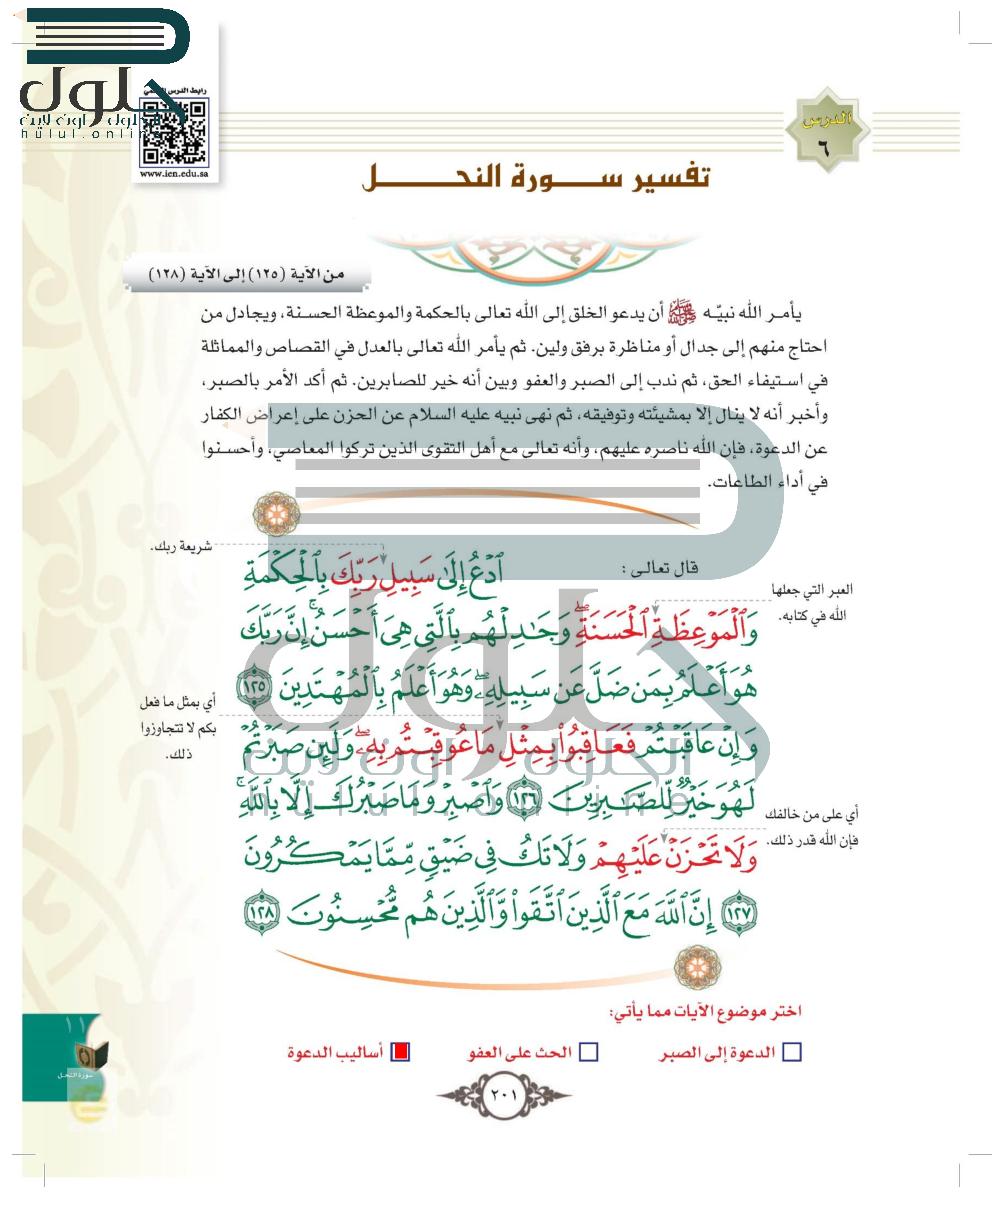 حلول
الحلول اون لاين
hulul.online
رابط الدرس
www.ien.edu.sa
الدرس
٦
تفسير ســورة النحــل
من الآية (١٢٥) إلى الآية (١٢٨)
يأمر الله نبيّه ﷺ أن يدعو الخلق إلى الله تعالى بالحكمة والموعظة الحسنة، ويجادل من
احتاج منهم إلى جدال أو مناظرة برفق ولين. ثم يأمر الله تعالى بالعدل في القصاص والمماثلة
في استيفاء الحق، ثم ندب إلى الصبر والعفو وبين أنه خير للصابرين. ثم أكد الأمر بالصبر،
وأخبر أنه لا ينال إلا بمشيئته وتوفيقه، ثم نهى نبيه عليه السلام عن الحزن على إعراض الكفار
عن الدعوة، فإن الله ناصره عليهم، وأنه تعالى مع أهل التقوى الذين تركوا المعاصي، وأحسنوا
في أداء الطاعات.
شريعة ربك.
قال تعالى :
ٱدْعُ إِلَىٰ سَبِيلِ رَبِّكَ بِٱلْحِكْمَةِ
العبر التي جعلها
الله في كتابه.
وَٱلْمَوْعِظَةِ ٱلْحَسَنَةِ ۖ وَجَٰدِلْهُم بِٱلَّتِى هِىَ أَحْسَنُ ۚ إِنَّ رَبَّكَ
هُوَ أَعْلَمُ بِمَن ضَلَّ عَن سَبِيلِهِۦ ۖ وَهُوَ أَعْلَمُ بِٱلْمُهْتَدِينَ ١٢٥
أي بمثل ما فعل
بكم لا تتجاوزوا
ذلك.
وَإِنْ عَاقَبْتُمْ فَعَاقِبُوا۟ بِمِثْلِ مَا عُوقِبْتُم بِهِۦ ۖ وَلَئِن صَبَرْتُمْ
لَهُوَ خَيْرٌ لِّلصَّٰبِرِينَ ١٢٦ وَٱصْبِرْ وَمَا صَبْرُكَ إِلَّا بِٱللَّهِ ۚ
أي على من خالفك
فإن الله قدر ذلك.
وَلَا تَحْزَنْ عَلَيْهِمْ وَلَا تَكُ فِى ضَيْقٍ مِّمَّا يَمْكُرُونَ
١٢٧ إِنَّ ٱللَّهَ مَعَ ٱلَّذِينَ ٱتَّقَوا۟ وَّٱلَّذِينَ هُم مُّحْسِنُونَ ١٢٨
حلول
الحلول اون لاين
hulul.online
اختر موضوع الآيات مما يأتي:
الدعوة إلى الصبر
الحث على العفو
أساليب الدعوة
١١
سورة النحل
٢٠١